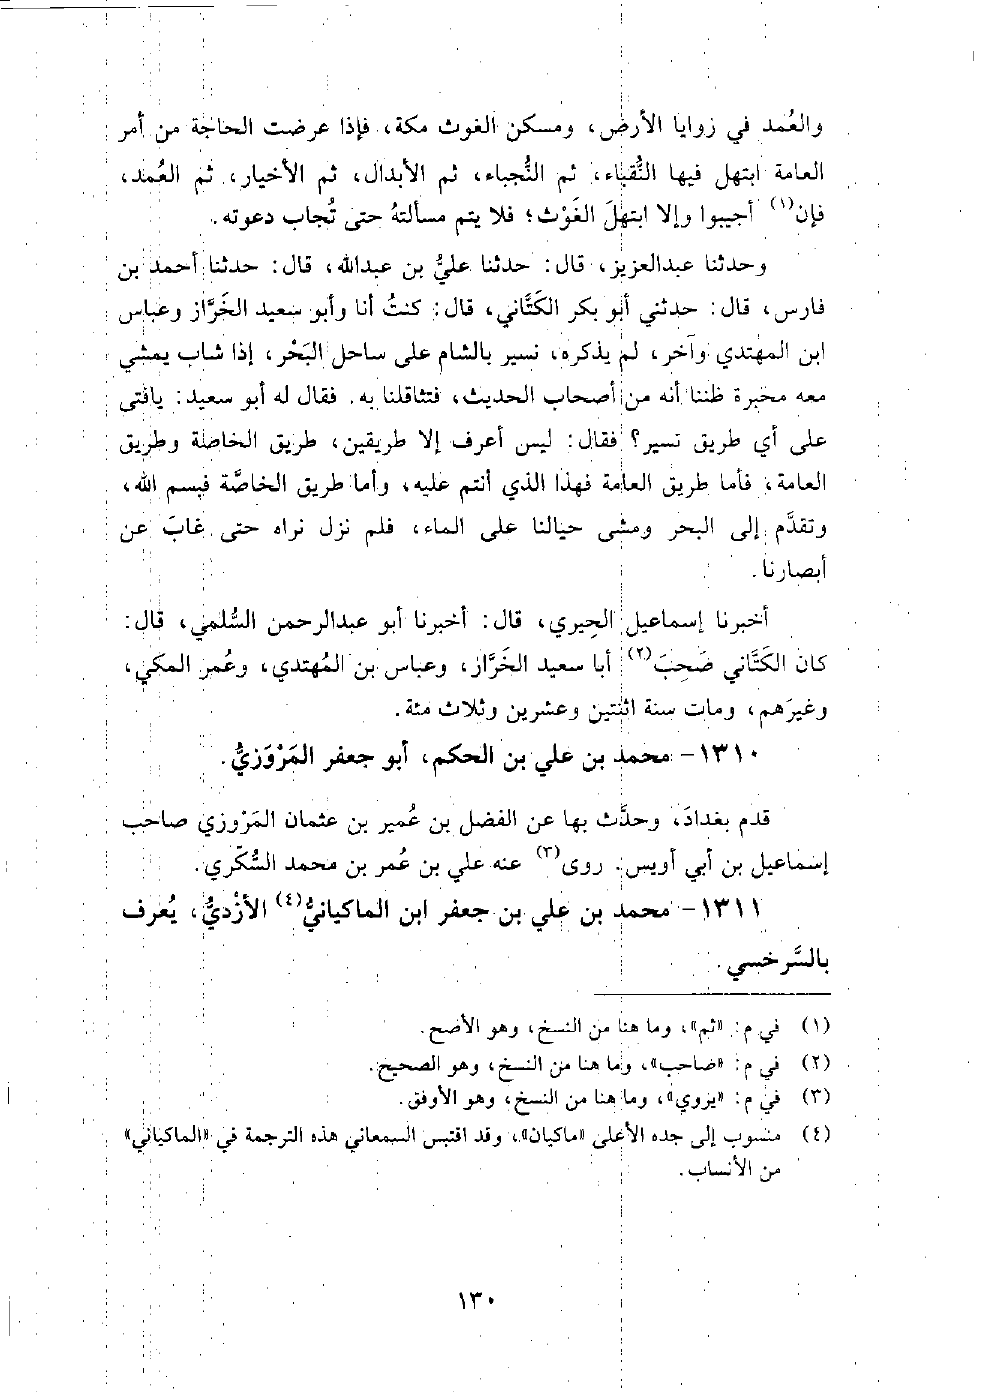 والعُمد في زوايا الأرض، ومسكن الغوث مكة، فإذا عرضت الحاجة من أمر
العامة ابتهل فيها النُّقباء، ثم النُّجباء، ثم الأبدال، ثم الأخيار، ثم العُمد،
فإن(١) أجيبوا وإلا ابتهلَ الغَوْث؛ فلا يتم مسألتهُ حتى تُجاب دعوته.
وحدثنا عبدالعزيز، قال: حدثنا عليُّ بن عبدالله، قال: حدثنا أحمد بن
فارس، قال: حدثني أبو بكر الكَتَّاني، قال: كنتُ أنا وأبو سعيد الخَرَّاز وعباس
ابن المهتدي وآخر، لم يذكره، نسير بالشام على ساحل البَحْر، إذا شاب يمشي
معه محبرة ظننا أنه من أصحاب الحديث، فتثاقلنا به. فقال له أبو سعيد: يافتى
على أي طريق تسير؟ فقال: ليس أعرف إلا طريقين، طريق الخاصة وطريق
العامة، فأما طريق العامة فهذا الذي أنتم عليه، وأما طريق الخاصَّة فبسم الله،
وتقدَّم إلى البحر ومشى حيالنا على الماء، فلم نزل نراه حتى غابَ عن
أبصارنا.
أخبرنا إسماعيل الحِيري، قال: أخبرنا أبو عبدالرحمن السُّلمي، قال:
كان الكَتَّاني صَحِبَ(٢) أبا سعيد الخَرَّاز، وعباس بن المُهتدي، وعُمر المكي،
وغيرَهم، ومات سنة اثنتين وعشرين وثلاث مئة.
١٣١٠- محمد بن علي بن الحكم، أبو جعفر المَرْوَزيُّ.
قدم بغدادَ، وحدَّث بها عن الفضل بن عُمير بن عثمان المَرْوزي صاحب
إسماعيل بن أبي أويس. روى(٣) عنه علي بن عُمر بن محمد السُّكَّري.
١٣١١- محمد بن علي بن جعفر ابن الماكيانيُّ(٤) الأزْديُّ، يُعرف
بالسَّرخسي.
(١) في م: «ثم»، وما هنا من النسخ، وهو الأصح.
(٢) في م: «صاحب»، وما هنا من النسخ، وهو الصحيح.
(٣) في م: «يروي»، وما هنا من النسخ، وهو الأوفق.
(٤) منسوب إلى جده الأعلى «ماكيان»، وقد اقتبس السمعاني هذه الترجمة في «الماكياني»
من الأنساب.
١٣٠